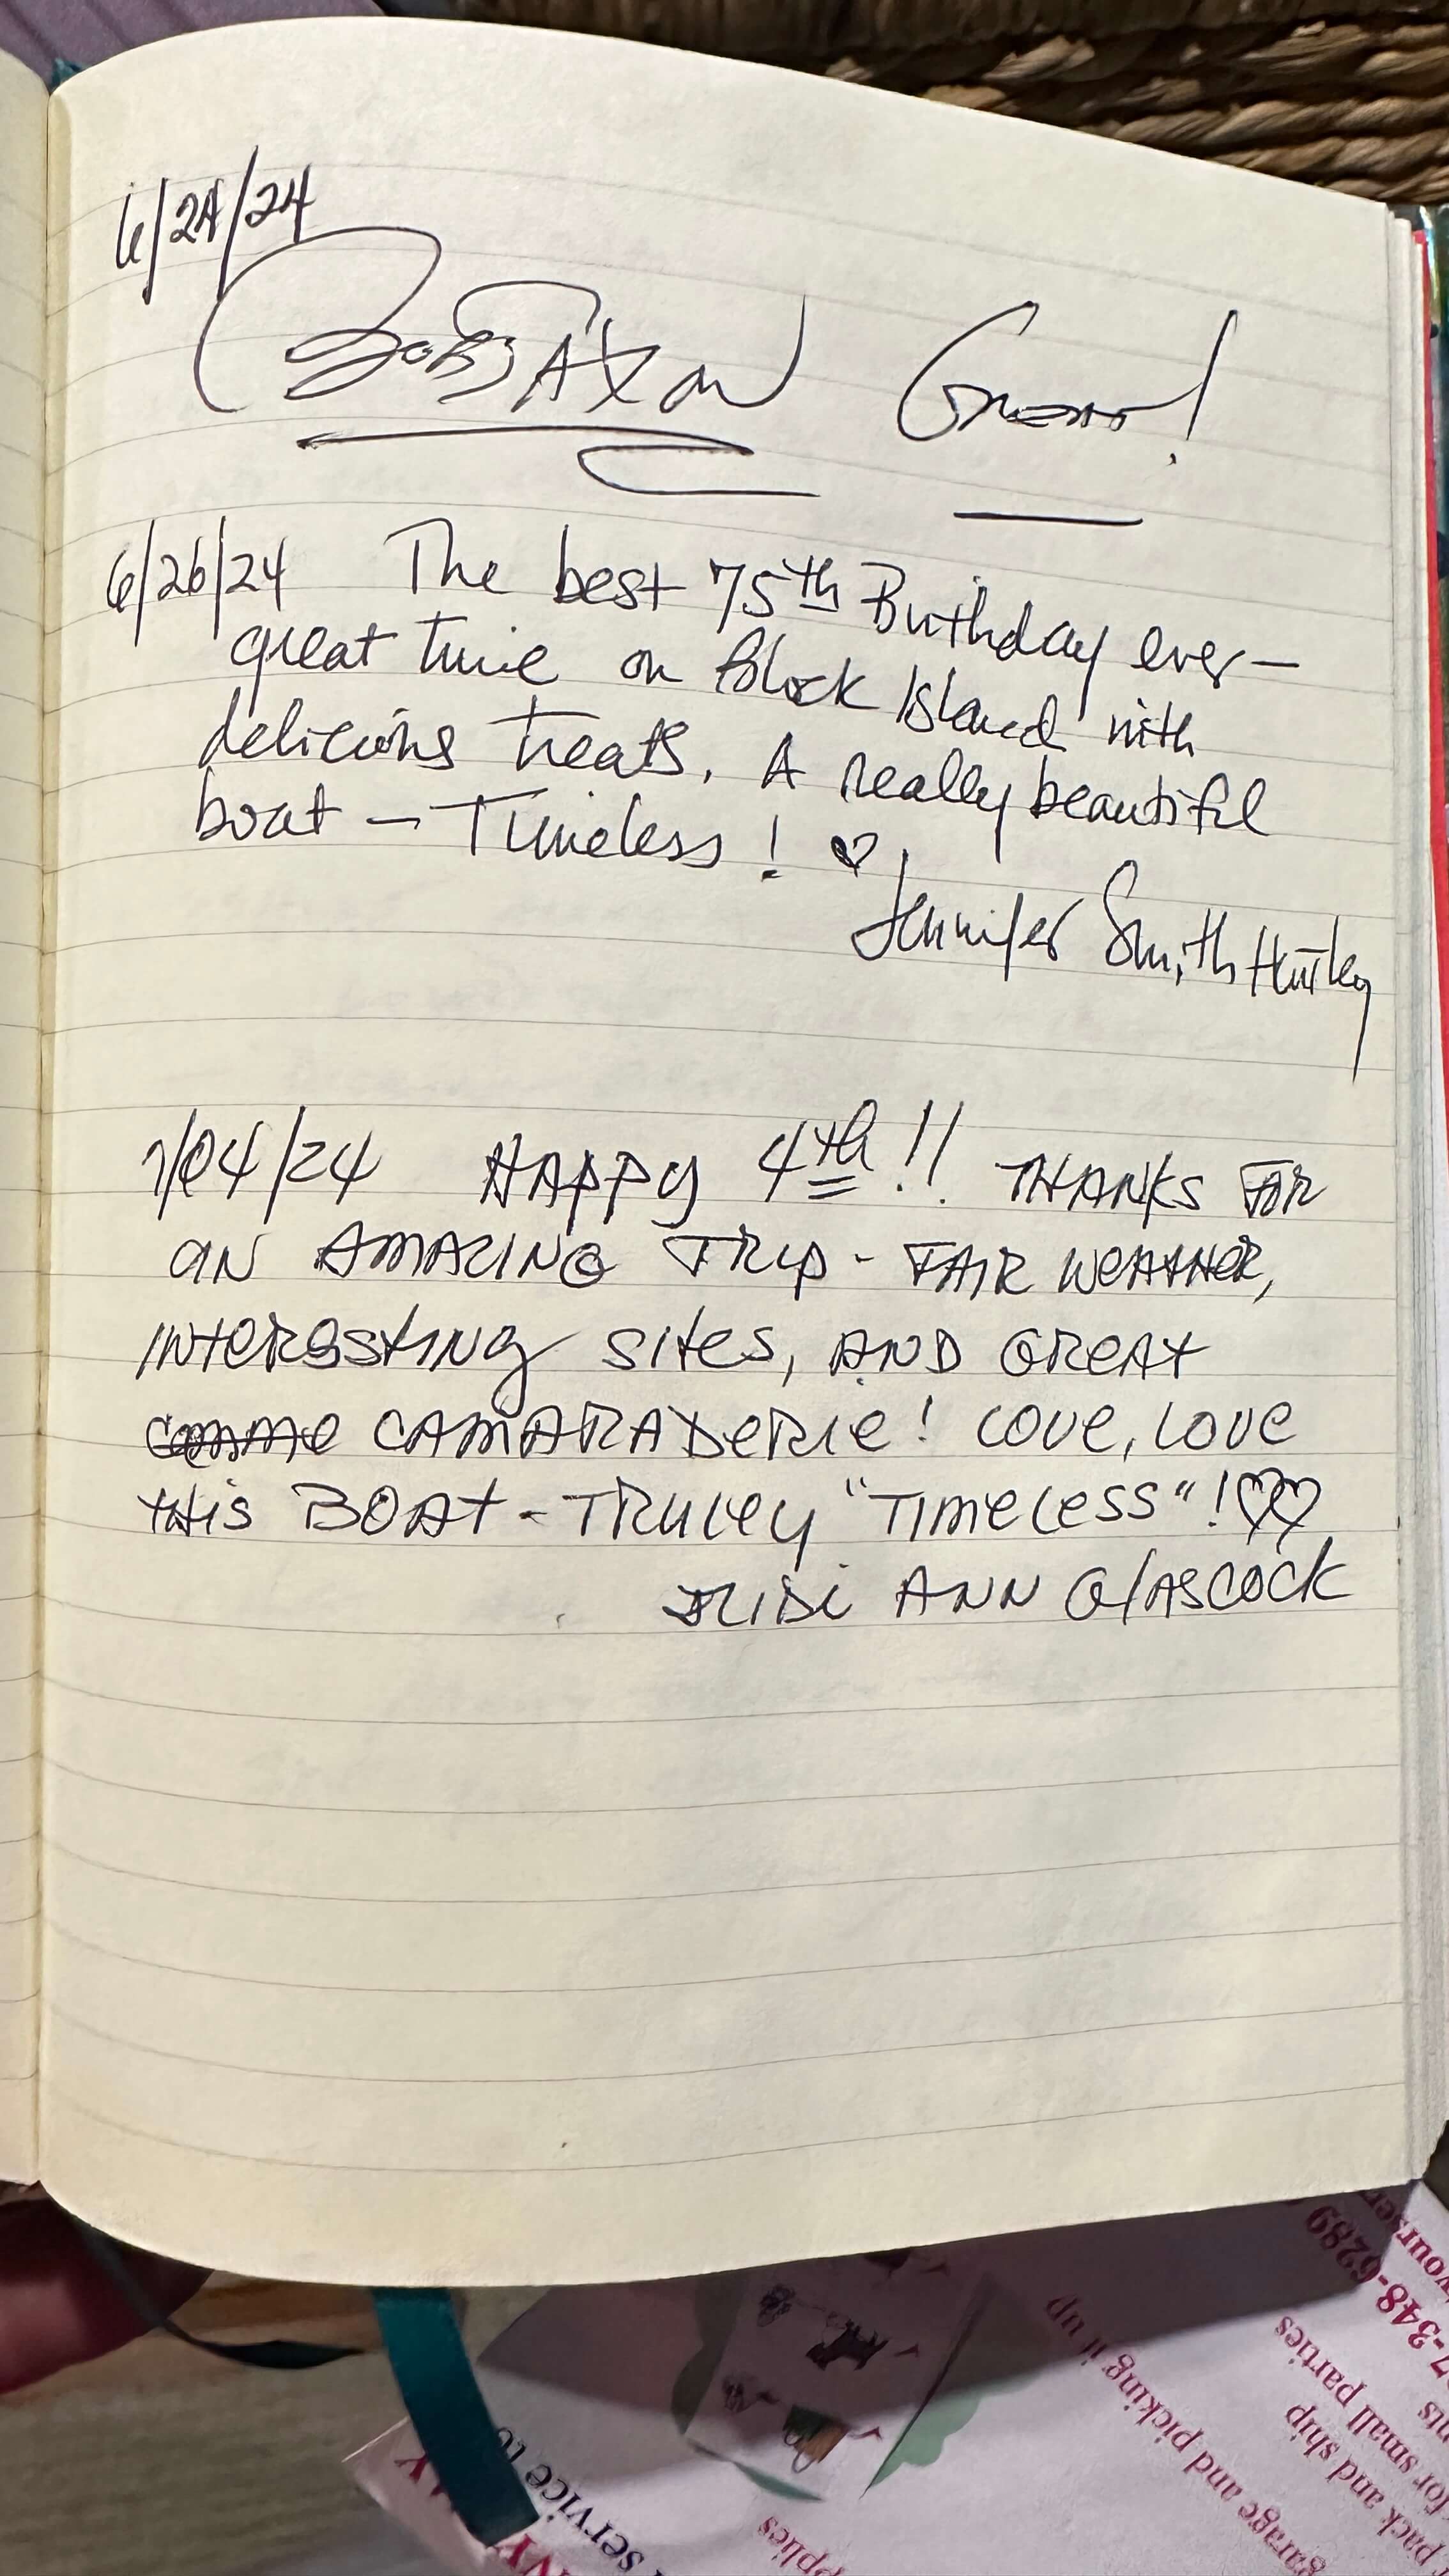 6/24/24
Bob Saxon
6/26/24 The best 75th Birthday ever —
great time on Block Island with
delicious treats. A really beautiful
boat — Timeless! ♡
Jennifer Smith Hurley
7/04/24 HAPPY 4th!! THANKS FOR
AN AMAZING TRIP - FAIR WEATHER,
INTERESTING SITES, AND GREAT
CAMARADERIE! LOVE, LOVE
THIS BOAT - TRULEY "TIMELESS"! ♡♡
ANN GLASCOCK
7-348-6289
for small parties
pack and ship
garage and picking it up
service to